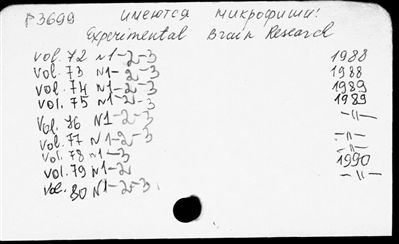 P3699 имеются микрофиши!
Experimental Brain Research
vol. 72 N1-2-3 1988
vol. 73 N1-2-3 1988
vol. 74 N1-2-3 1989
vol. 75 N1-2-3 1989
vol. 76 N1-2-3 -"-
vol. 77 N1-2-3 -"-
vol. 78 N1-3 -"-
vol. 79 N1-2 1990
vol. 80 N1-2-3 -"-